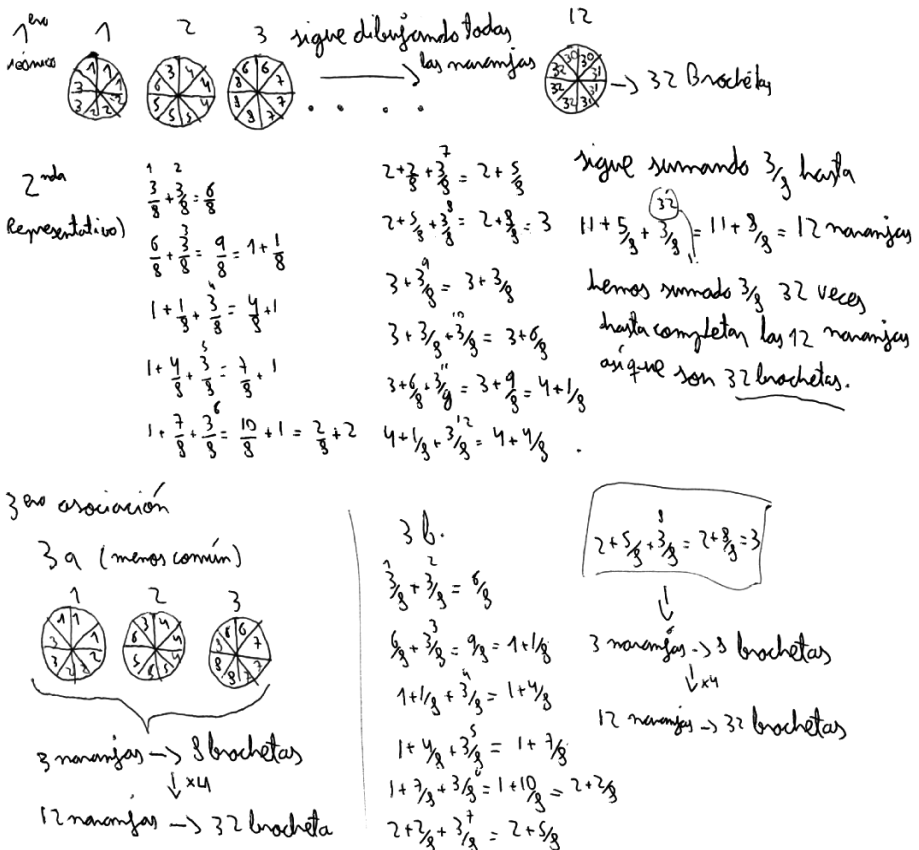 1ero
icónico
1 2 3 sigue dibujando todas
las naranjas
12
1 1 1 2 2 2 3 3
3 4 4 4 5 5 5 6
6 6 7 7 7 8 8 8
30 30 31 31 31 32 32 32
→ 32 Brochetas
2nda
Representativo)
1 2
3/8 + 3/8 = 6/8
3
6/8 + 3/8 = 9/8 = 1 + 1/8
4
1 + 1/8 + 3/8 = 4/8 + 1
5
1 + 4/8 + 3/8 = 7/8 + 1
6
1 + 7/8 + 3/8 = 10/8 + 1 = 2/8 + 2
7
2 + 2/8 + 3/8 = 2 + 5/8
8
2 + 5/8 + 3/8 = 2 + 8/8 = 3
9
3 + 3/8 = 3 + 3/8
10
3 + 3/8 + 3/8 = 3 + 6/8
11
3 + 6/8 + 3/8 = 3 + 9/8 = 4 + 1/8
12
4 + 1/8 + 3/8 = 4 + 4/8 .
sigue sumando 3/8 hasta
32
11 + 5/8 + 3/8 = 11 + 8/8 = 12 naranjas
hemos sumado 3/8 32 veces
hasta completar las 12 naranjas
así que son 32 brochetas.
3ero asociación
3a (menos común)
1 2 3
1 1 1 2 2 2 3 3
3 4 4 4 5 5 5 6
6 6 7 7 7 8 8 8
3 naranjas → 8 brochetas
↓ x4
12 naranjas → 32 brocheta
3b.
1 2
3/8 + 3/8 = 6/8
3
6/8 + 3/8 = 9/8 = 1 + 1/8
4
1 + 1/8 + 3/8 = 1 + 4/8
5
1 + 4/8 + 3/8 = 1 + 7/8
6
1 + 7/8 + 3/8 = 1 + 10/8 = 2 + 2/8
7
2 + 2/8 + 3/8 = 2 + 5/8
8
2 + 5/8 + 3/8 = 2 + 8/8 = 3
↓
3 naranjas → 8 brochetas
↓ x4
12 naranjas → 32 brochetas